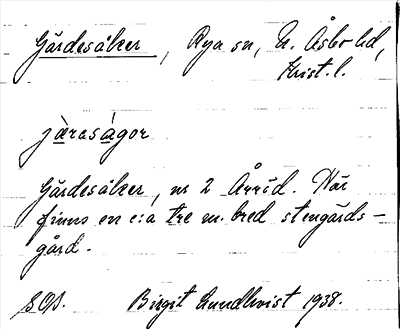 Gärdesåker, Rya sn, N. Åsbo hd,
Krist. l.
jæ̀rasågor
Gärdesåker, nr 2 Årröd. Här
finns en c:a tre m. bred stengärds-
gård.
SOA. Birgit Lundkvist 1938.